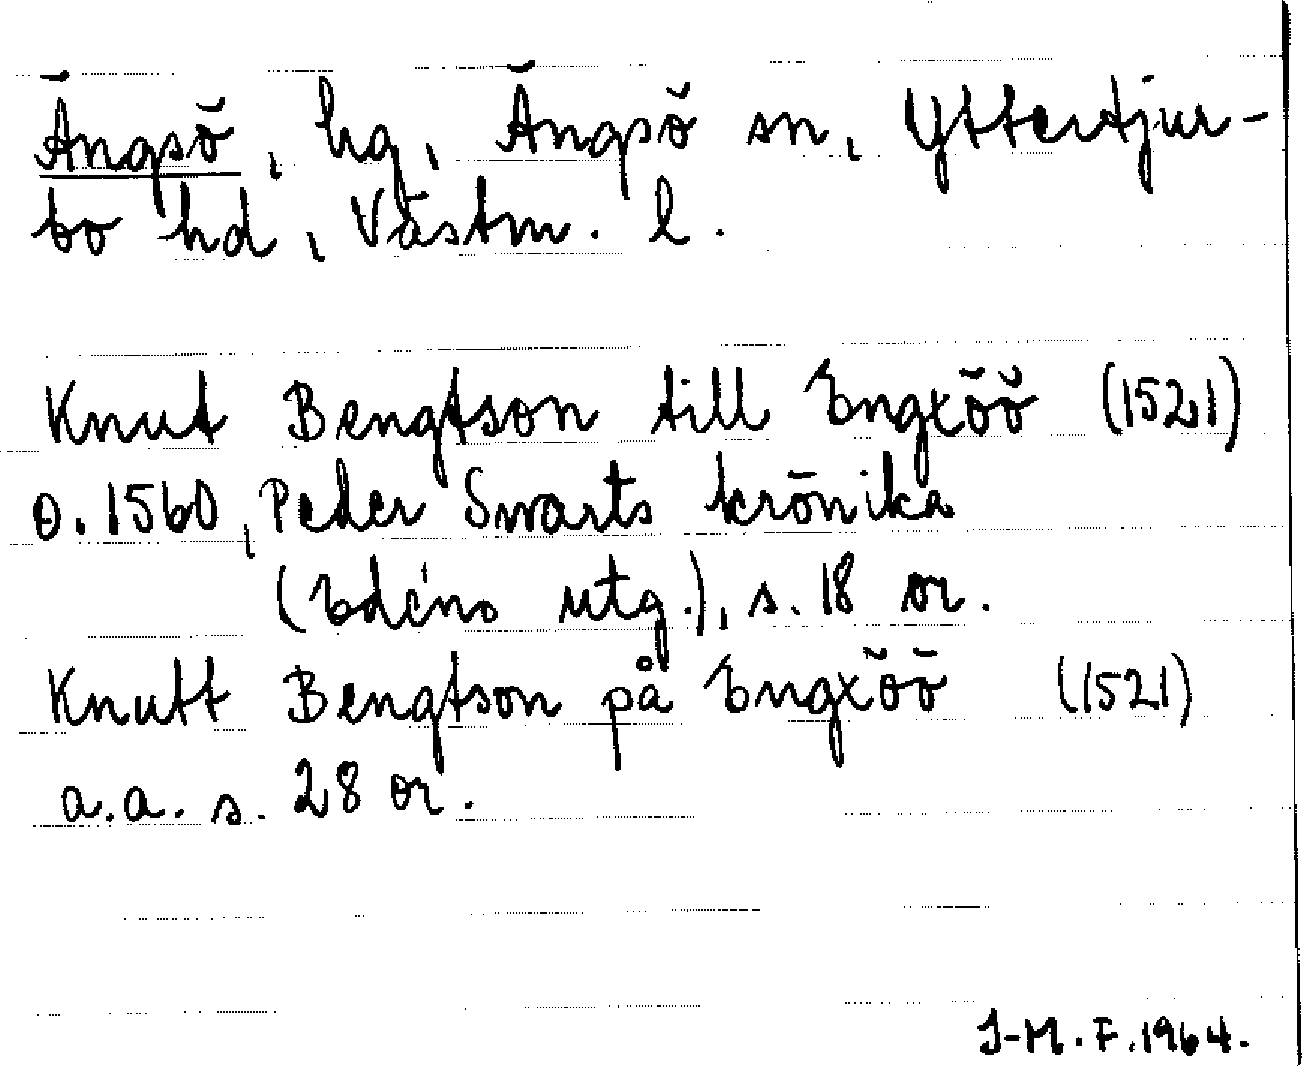 Ängsö, hg, Ängsö sn, Yttertjur-
bo hd, Västm. l.
Knut Bengtson till Engxöö (1521)
o. 1560, Peder Swarts krönika
(Edéns utg.), s. 18 or.
Knutt Bengtson på Engxöö (1521)
a.a. s. 28 or.
J-M. F. 1964.